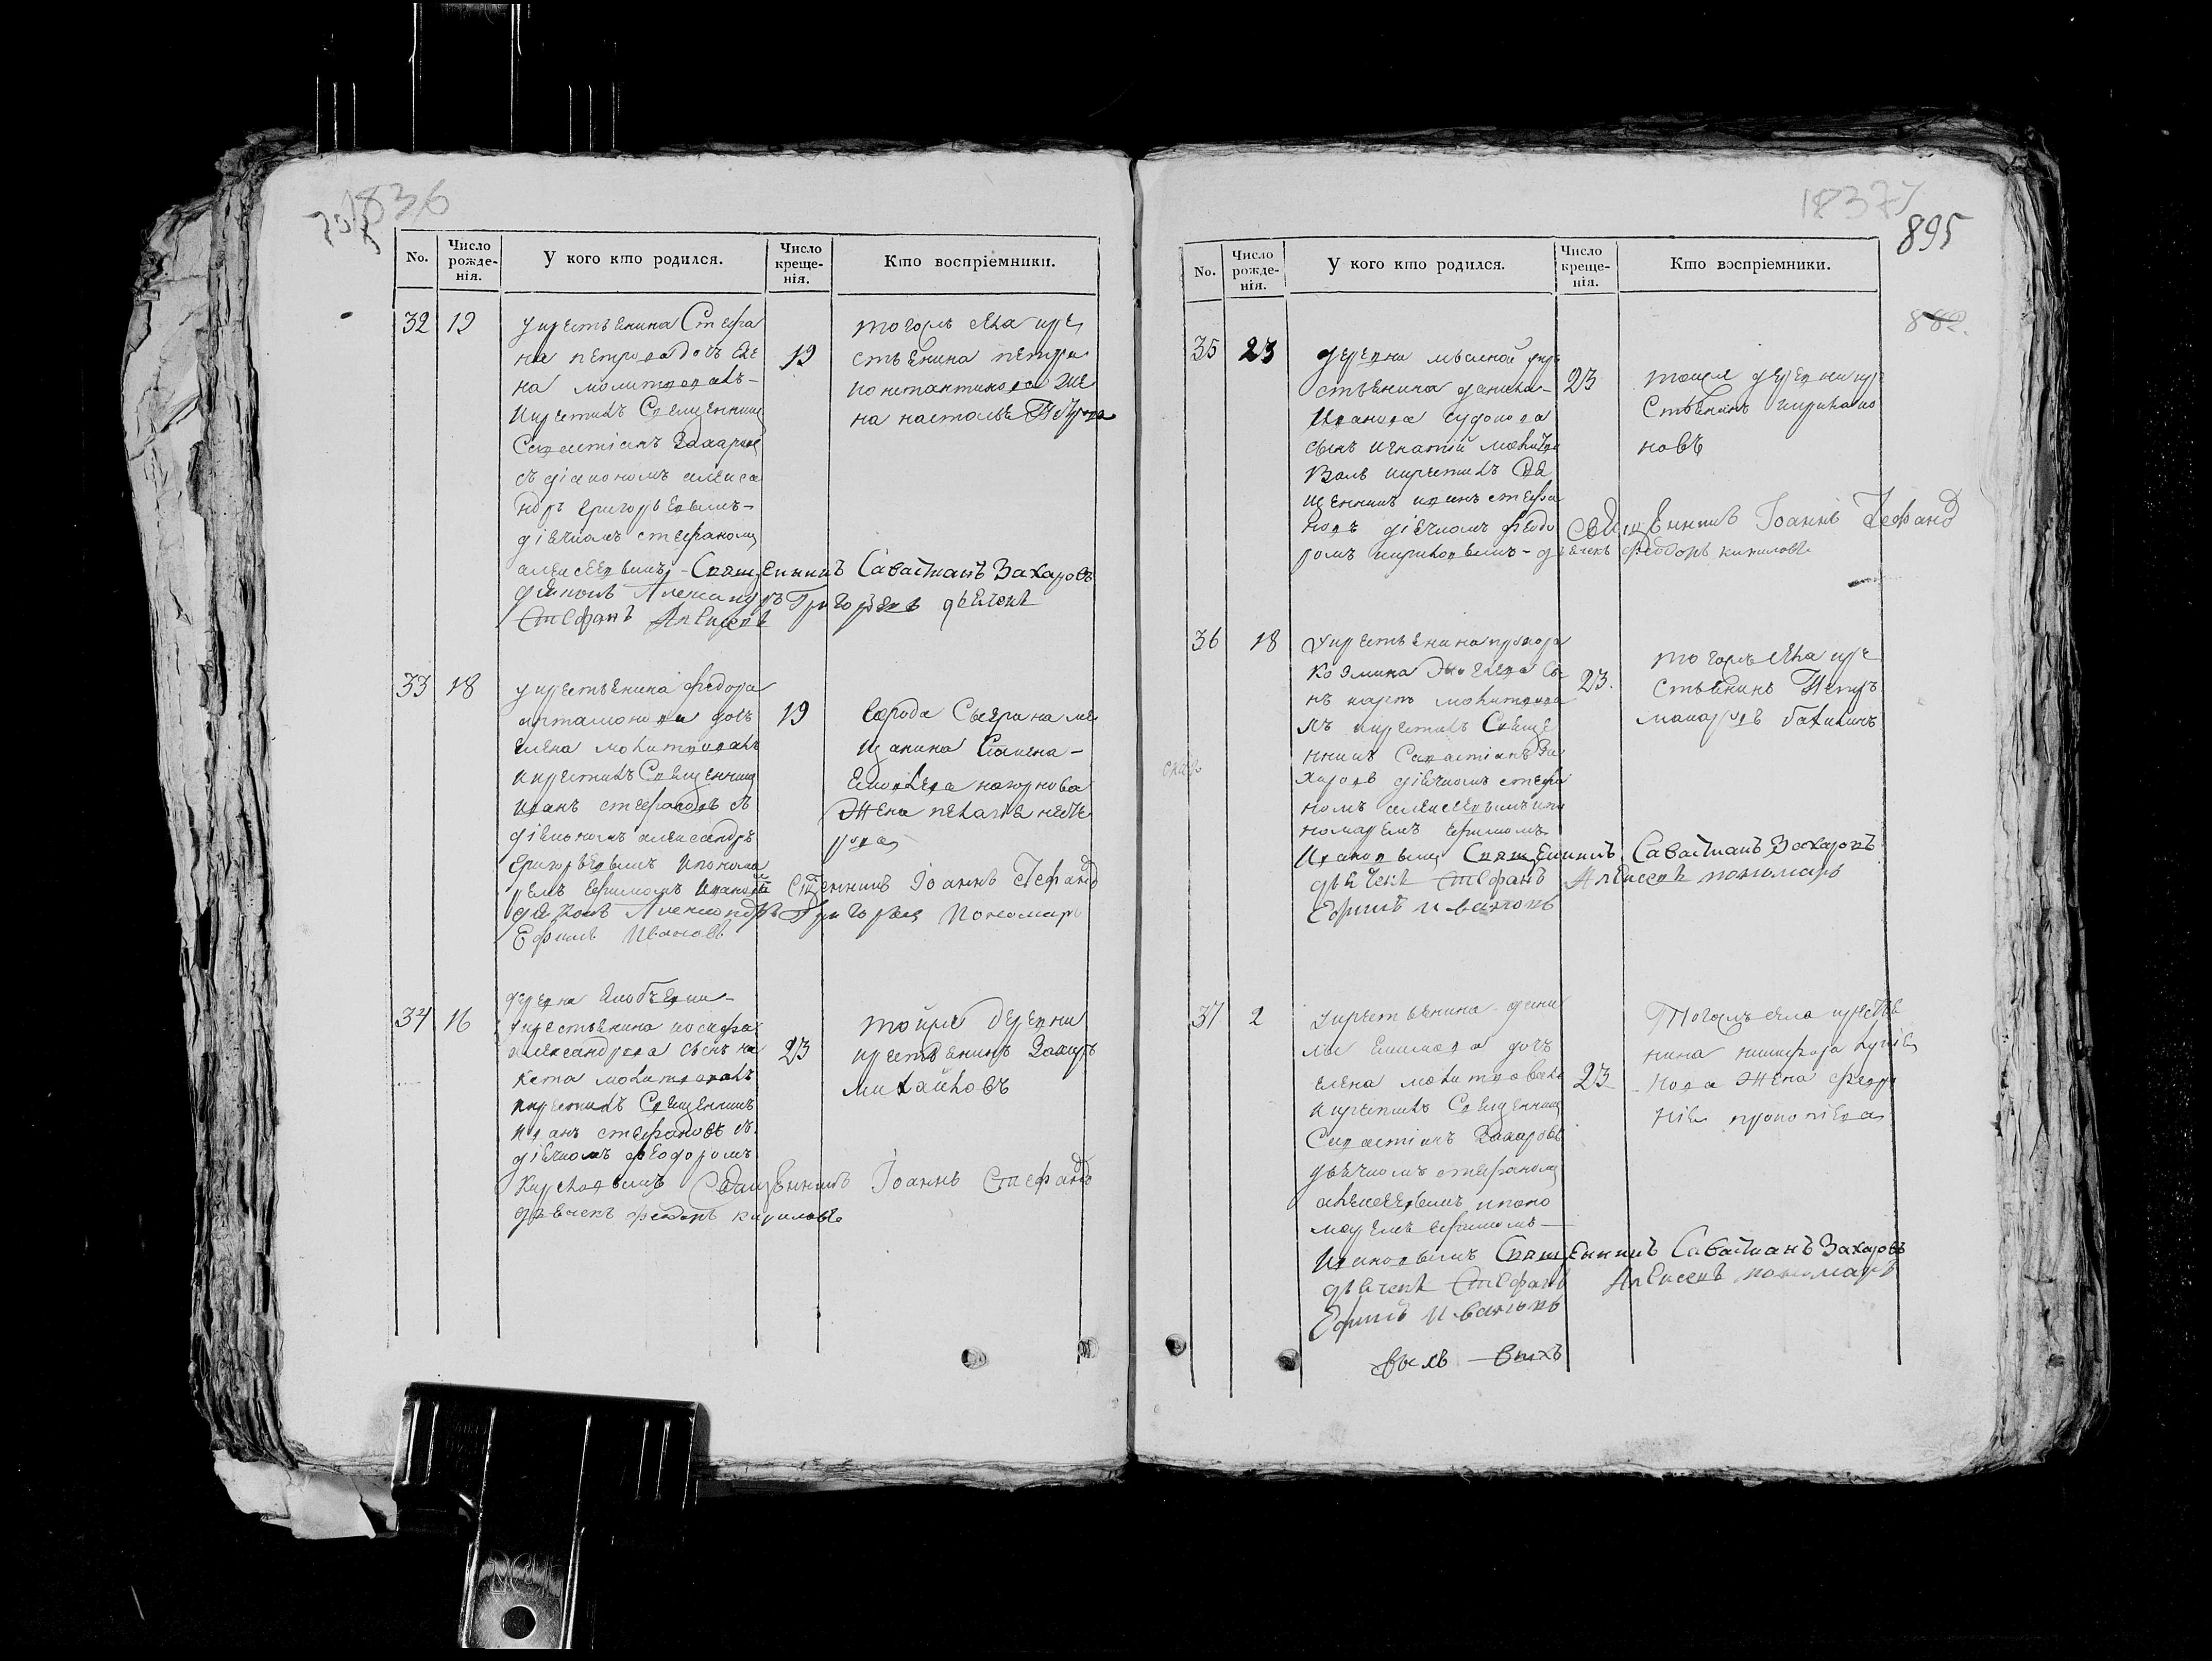 1836
No.
Число рожде-нія.
У кого кто родился.
Число креще-нія.
Кто воспріемники.
32 19
укрестьенина Стефа
на петрова дочь еле
на молитвовалъ
икрестилъ Священникъ
Савастіанъ Захаровъ
съ діакономъ алекса
ндръ григорьевымъ
діячкомъ стефаномъ
алексеевымъ - Священникъ Савастианъ Захаровъ
Диаконъ Александръ Григорьевъ дьячекъ
Стефанъ Алексеевъ
19
тогожъ села кре
стьенина петра
константинова же
на настасья Петрова
33 18
укрестьенина федора
артамонова дочь
елена молитвовалъ
икрестилъ Священникъ
иванъ стефановъ съ
діакономъ александръ
григорьевымъ ипонома
ремъ ефимомъ ивановы Священникъ Іоаннъ Стефановъ
диаконъ Александръ Григорьевъ Пономарь
Ефимъ Ивановъ
19
города
щанина
жена
34 16
деревни
укрестьенина иосифа
александрова сынъ ни
кита молитвовалъ
икрестилъ Священникъ
иванъ стефановъ съ
діячкомъ феодоромъ
кириловымъ Священникъ Іоаннъ Стефановъ
дьячекъ федоръ кириловъ
23
тойже деревни
крестьенинъ Захаръ
михайловъ
1837
895
No.
Число рожде-нія.
У кого кто родился.
Число креще-нія.
Кто воспріемники.
35 23
деревни кре
стьенина данила
Иванова
сынъ игнатій молитво
валъ икрестилъ Свя
щенникъ иванъ стефа
новъ діячкомъ федо Священникъ Іоаннъ Стефановъ
ромъ кириловымъ - дьячекъ федоръ кириловъ
23
тоеже деревни кре
стьенинъ
новъ
36 18
Укрестьенина
козмина сы
нъ карпъ молитвова
лъ икрестилъ Свяще
нникъ Савастіанъ За
харовъ діячкомъ стефа
номъ алексеевымъ ипо
номаремъ ефимомъ
Ивановымъ Священникъ Савастианъ Захаровъ
дьячекъ Стефанъ Алексеевъ пономарь
Ефимъ Ивановъ
23.
тогожъ села кре
стьенинъ Петръ
макаровъ
37 2
укрестьенина дани
лы дочь
елена молитвовалъ
икрестилъ Священникъ
Савастіанъ Захаровъ
дьячкомъ стефаномъ
алексеевымъ ипоно
маремъ ефимомъ
Ивановымъ Священникъ Савастианъ Захаровъ
дьячекъ Стефанъ Алексеевъ пономарь
Ефимъ Ивановъ
23
Тогожъ села крестье
нина никифора
нова жена февро
нія прокопіева